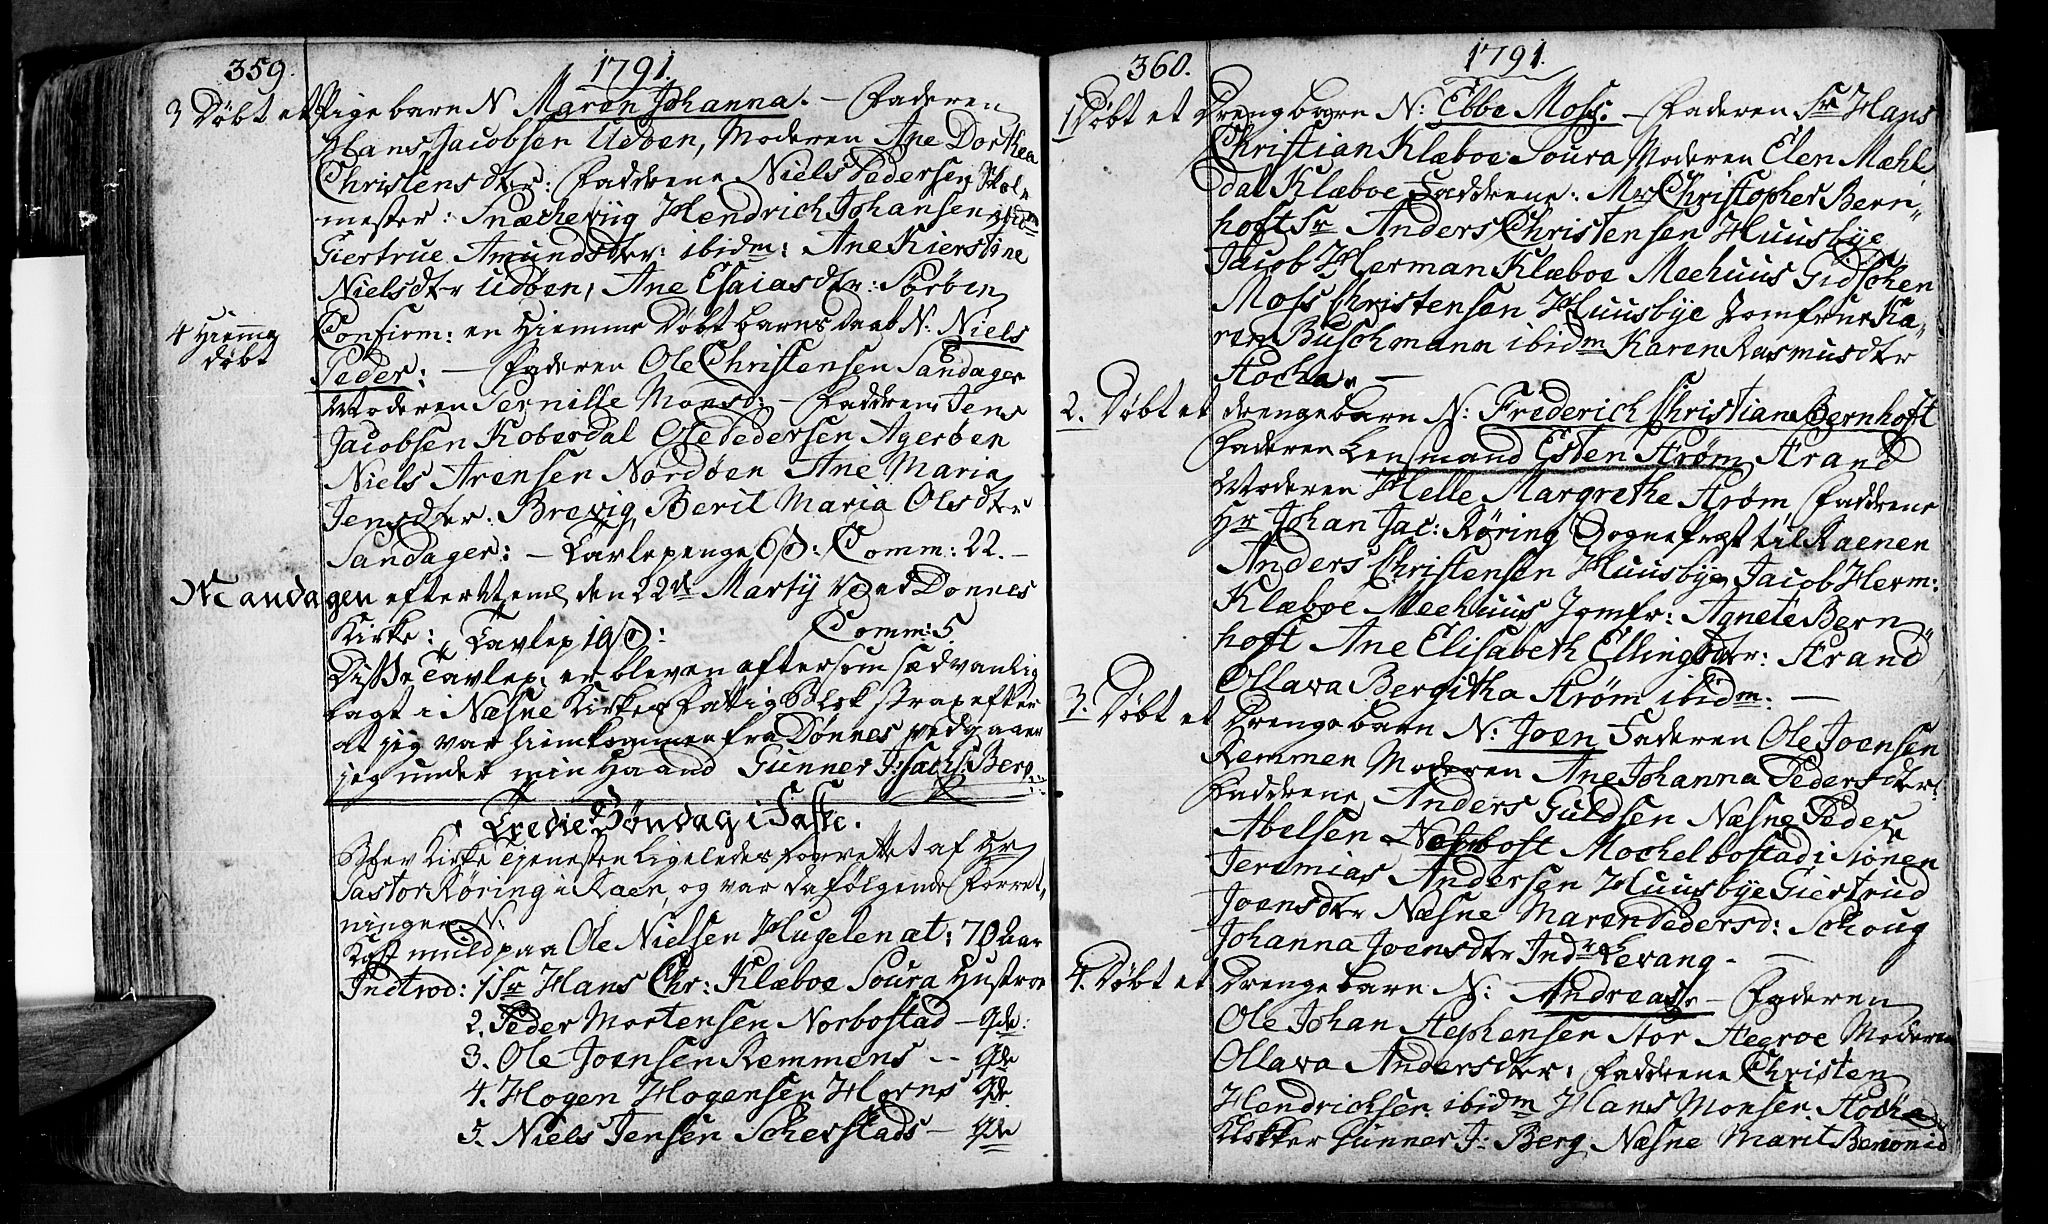 359.
1791.
3 Døbt et Pigebarn N. Maren Johanna. – Faderen
Hans Jacobsen Udøen, Moderen Ane Dorthea
Christensdtr: Faddrene Niels Pedersen Skol-
mester: Hendrich Johansen ibidm
Giertrue Amundsdtr: ibidm: Ane Kierstine
Nielsdtr Udøen, Ane Esaiasdtr: Sørøen
4 Hiemme
døbt
Confirm: en Hiemme Døbt barns daab N: Niels
Peder: – Faderen Ole Christensen Sandager
Moderen Pernille Monsd: – Faddrene Jens
Jacobsen Koberdal Ole Pedersen Agerøen
Niels Arensen Nordøen Ane Maria
Jensdtr. Brevig, Berit Maria Olsdtr
Sandager: – Tavlepenge 6 β: Comm: 22. –
Mandagen efter den 22de Martij ved Dønnes
Kirke: Tavlep 19 β: Comm: 5.
Disse Tavlep: er bleven eftersom sædvanlig
lagt i Næsne Kirkes Fattig Blok strax efter
at jeg var hiemkommen fra Dønnes vedgaaer
jeg under min Haand Gunner J: Sachs: Berg
Tredie Søndag i Faste.
Blev Kirke Tjenesten Ligeledes forrettet af Hr
Pastor Røring i Raen, og var da følgende Forret-
ninger N.
Kast muld paa Ole Nielsen Hugelen æt: 70 Aar
Introd: 1 Sr Hans Chr: Klæboe Soura Hustroe
2. Peder Mortensen Norbostad – qde:
3. Ole Joensen Remmens – – qde
4. Hogen Hogensen Horns qde
5. Niels Jensen Scherstads – qde
360.
1791.
1 Døbt et Drengebarn N: Ebbe Moss. – Faderen Sr Hans
Christian Klæboe: Soura Moderen Elen Mæhl
dal Klæboe Faddrene: Mr Christopher Bern-
hoft Sr Anders Christensen Huusbye
Jacob Herman Klæboe Meehuus Gidschen
Moss Christensen Huusbye Jomfrue Ka-
ren Buschmann ibidm Karen Rasmusdtr
Stocha. –
2. Døbt et drengebarn N: Frederich Christian Bernhoft
Faderen Lensmand Esten Strøm Strand
Moderen Helle Margrethe Strøm Faddrene
Hr Johan Jac: Røring Sognepræst til Raenen
Anders Christensen Huusbye Jacob Herm:
Klæboe Meehuus Jomfr: Agnete Bern-
hoft Ane Elisabeth Ellingsdtr: Strand
Ollava Bergitha Strøm ibidm: –
3. Døbt et Drengebarn N: Joen Faderen Ole Joensen
Remmen Moderen Ane Johanna Pedersdtr:
Faddrene Anders Guldsen Næsne Peder
Abelsen Mochelbostad i Siønen
Jeremias Andersen Huusbye Giertrud
Joensdtr Næsne Maren Pedersd: Schoug
Johanna Joensdtr Indr Levang. –
4. Døbt et Drengebarn N: Andreas. – Faderen
Ole Johan Stephensen Stor Stegroe Moderen
Ollava Andersdtr: Faddrene Christen
Hendrichsen ibidm Hans Monsen Stocha
Klokker Gunner J: Berg Næsne Marit Benonid